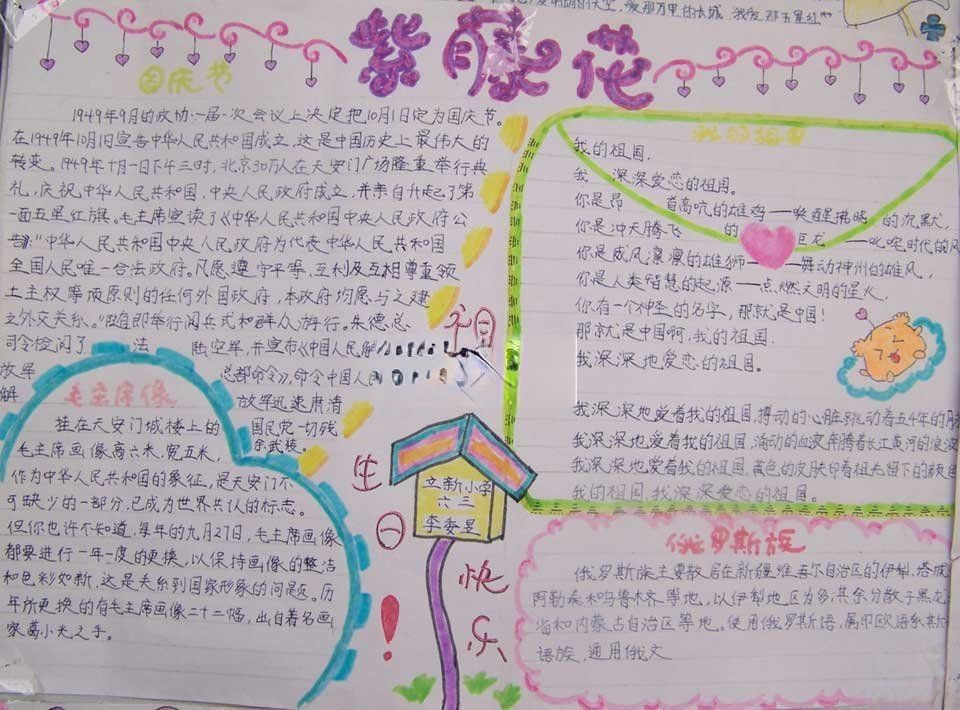 紫藤花
国庆节
1949年9月的政协一届一次会议上决定把10月1日定为国庆节。
在1949年10月1日宣告中华人民共和国成立,这是中国历史上最伟大的
转变。1949年十月一日下午三时,北京30万人在天安门广场隆重举行典
礼,庆祝中华人民共和国,中央人民政府成立,并亲自升起了第
一面五星红旗。毛主席宣读了《中华人民共和国中央人民政府公
告》:"中华人民共和国中央人民政府为代表中华人民共和国
全国人民唯一合法政府。凡愿遵守平等,互利及互相尊重领
土主权等项原则的任何外国政府,本政府均愿与之建
之外交关系。"随即举行阅兵式和群众游行。朱德总
司令检阅了 法 陆空军,并宣布《中国人民解
放军 总部命令》,命令中国人民
解 放军迅速肃清
国民党一切残
余武装。
毛主席像
挂在天安门城楼上的
毛主席画像高六米,宽五米,
作为中华人民共和国的象征,是天安门不
可缺少的一部分,已成为世界共认的标志。
但你也许不知道,每年的九月27日,毛主席画像
都要进行一年一度的更换,以保持画像的整洁
和色彩如新,这是关系到国家形象的问题。历
年所更换的有毛主席画像二十二幅,出自着名画
家葛小光之手。
祖
生
日
快
乐
!
立新小学
六三
李委昱
我的祖国
我的祖国,
我 深深爱恋的祖国。
你是昂 首高吭的雄鸡——唤醒拂晓 的沉默,
你是冲天腾飞 的 巨龙 ——叱咤时代的风
你是威风凛凛的雄狮——舞动神州的雄风,
你是人类智慧的起源——点燃文明的星火,
你有一个神圣的名字,那就是中国!
那就是中国啊,我的祖国.
我深深地爱恋的祖国。
我深深地爱着我的祖国,搏动的心脏跳动着五千年的
我深深地爱着我的祖国,涌动的血液奔腾着长江黄河的浪
我深深地爱着我的祖国,黄色的皮肤印着祖先留下的
我的祖国,我深深爱恋的祖国。
俄罗斯族
俄罗斯族主要散居在新疆维吾尔自治区的伊犁,塔城
阿勒泰和乌鲁木齐等地,以伊犁地区为多;其余分散于黑龙
省和内蒙古自治区等地。使用俄罗斯语,属印欧语系斯
语族,通用俄文